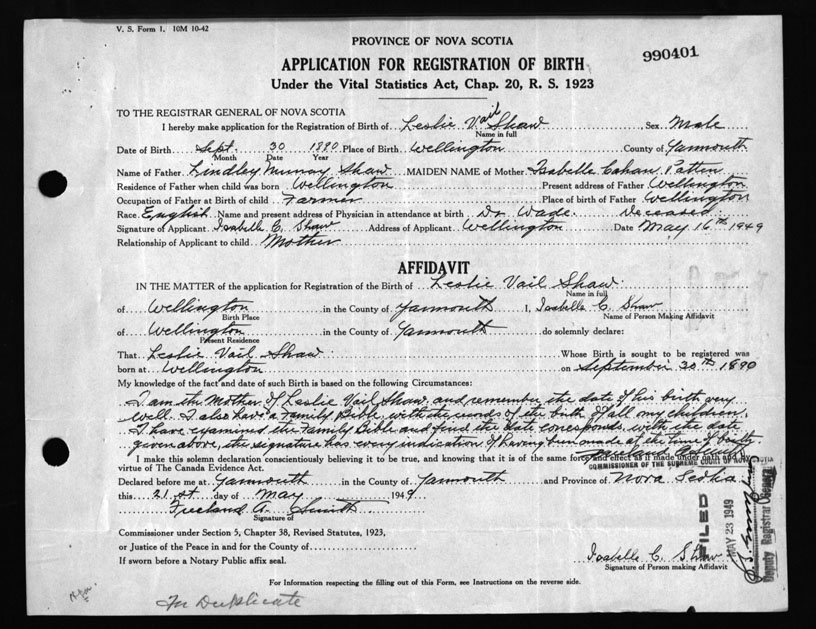 V. S. Form 1. 10M 10-42
PROVINCE OF NOVA SCOTIA
990401
APPLICATION FOR REGISTRATION OF BIRTH
Under the Vital Statistics Act, Chap. 20, R. S. 1923
TO THE REGISTRAR GENERAL OF NOVA SCOTIA
I hereby make application for the Registration of Birth of Leslie Vail Shaw Sex Male
Name in full
Date of Birth Sept. 30 1890 Place of Birth Wellington County of Yarmouth
Month Date Year
Name of Father Lindley Murray Shaw MAIDEN NAME of Mother Isabelle Cahan Patten
Residence of Father when child was born Wellington Present address of Father Wellington
Occupation of Father at Birth of child Farmer Place of birth of Father Wellington
Race English Name and present address of Physician in attendance at birth Dr. Wade. Deceased.
Signature of Applicant Isabelle C. Shaw Address of Applicant Wellington Date May 16th 1949
Relationship of Applicant to child Mother
AFFIDAVIT
IN THE MATTER of the application for Registration of the Birth of Leslie Vail Shaw
Name in full
of Wellington in the County of Yarmouth I, Isabelle C. Shaw
Birth Place Name of Person Making Affidavit
of Wellington in the County of Yarmouth do solemnly declare:
Present Residence
That Leslie Vail Shaw Whose Birth is sought to be registered was
born at Wellington on September 30th 1890
My knowledge of the fact and date of such Birth is based on the following Circumstances:
I am the Mother of Leslie Vail Shaw, and remember the date of his birth very
well. I also have a Family Bible with the records of the birth of all my children.
I have examined the Family Bible and find the date corresponds with the date
given above, the signature has every indication of having been made at the time of birth
I make this solemn declaration conscientiously believing it to be true, and knowing that it is of the same force and effect as if made under oath and by
virtue of The Canada Evidence Act.
COMMISSIONER OF THE SUPREME COURT OF NOVA SCOTIA
Declared before me at Yarmouth in the County of Yarmouth and Province of Nova Scotia
this 21st day of May 1949
Freeland A. Smith
Signature of
Commissioner under Section 5, Chapter 38, Revised Statutes, 1923,
or Justice of the Peace in and for the County of
If sworn before a Notary Public affix seal.
Isabelle C. Shaw
Signature of Person making Affidavit
FILED
MAY 23 1949
Deputy Registrar General
For Information respecting the filling out of this Form, see Instructions on the reverse side.
In Duplicate